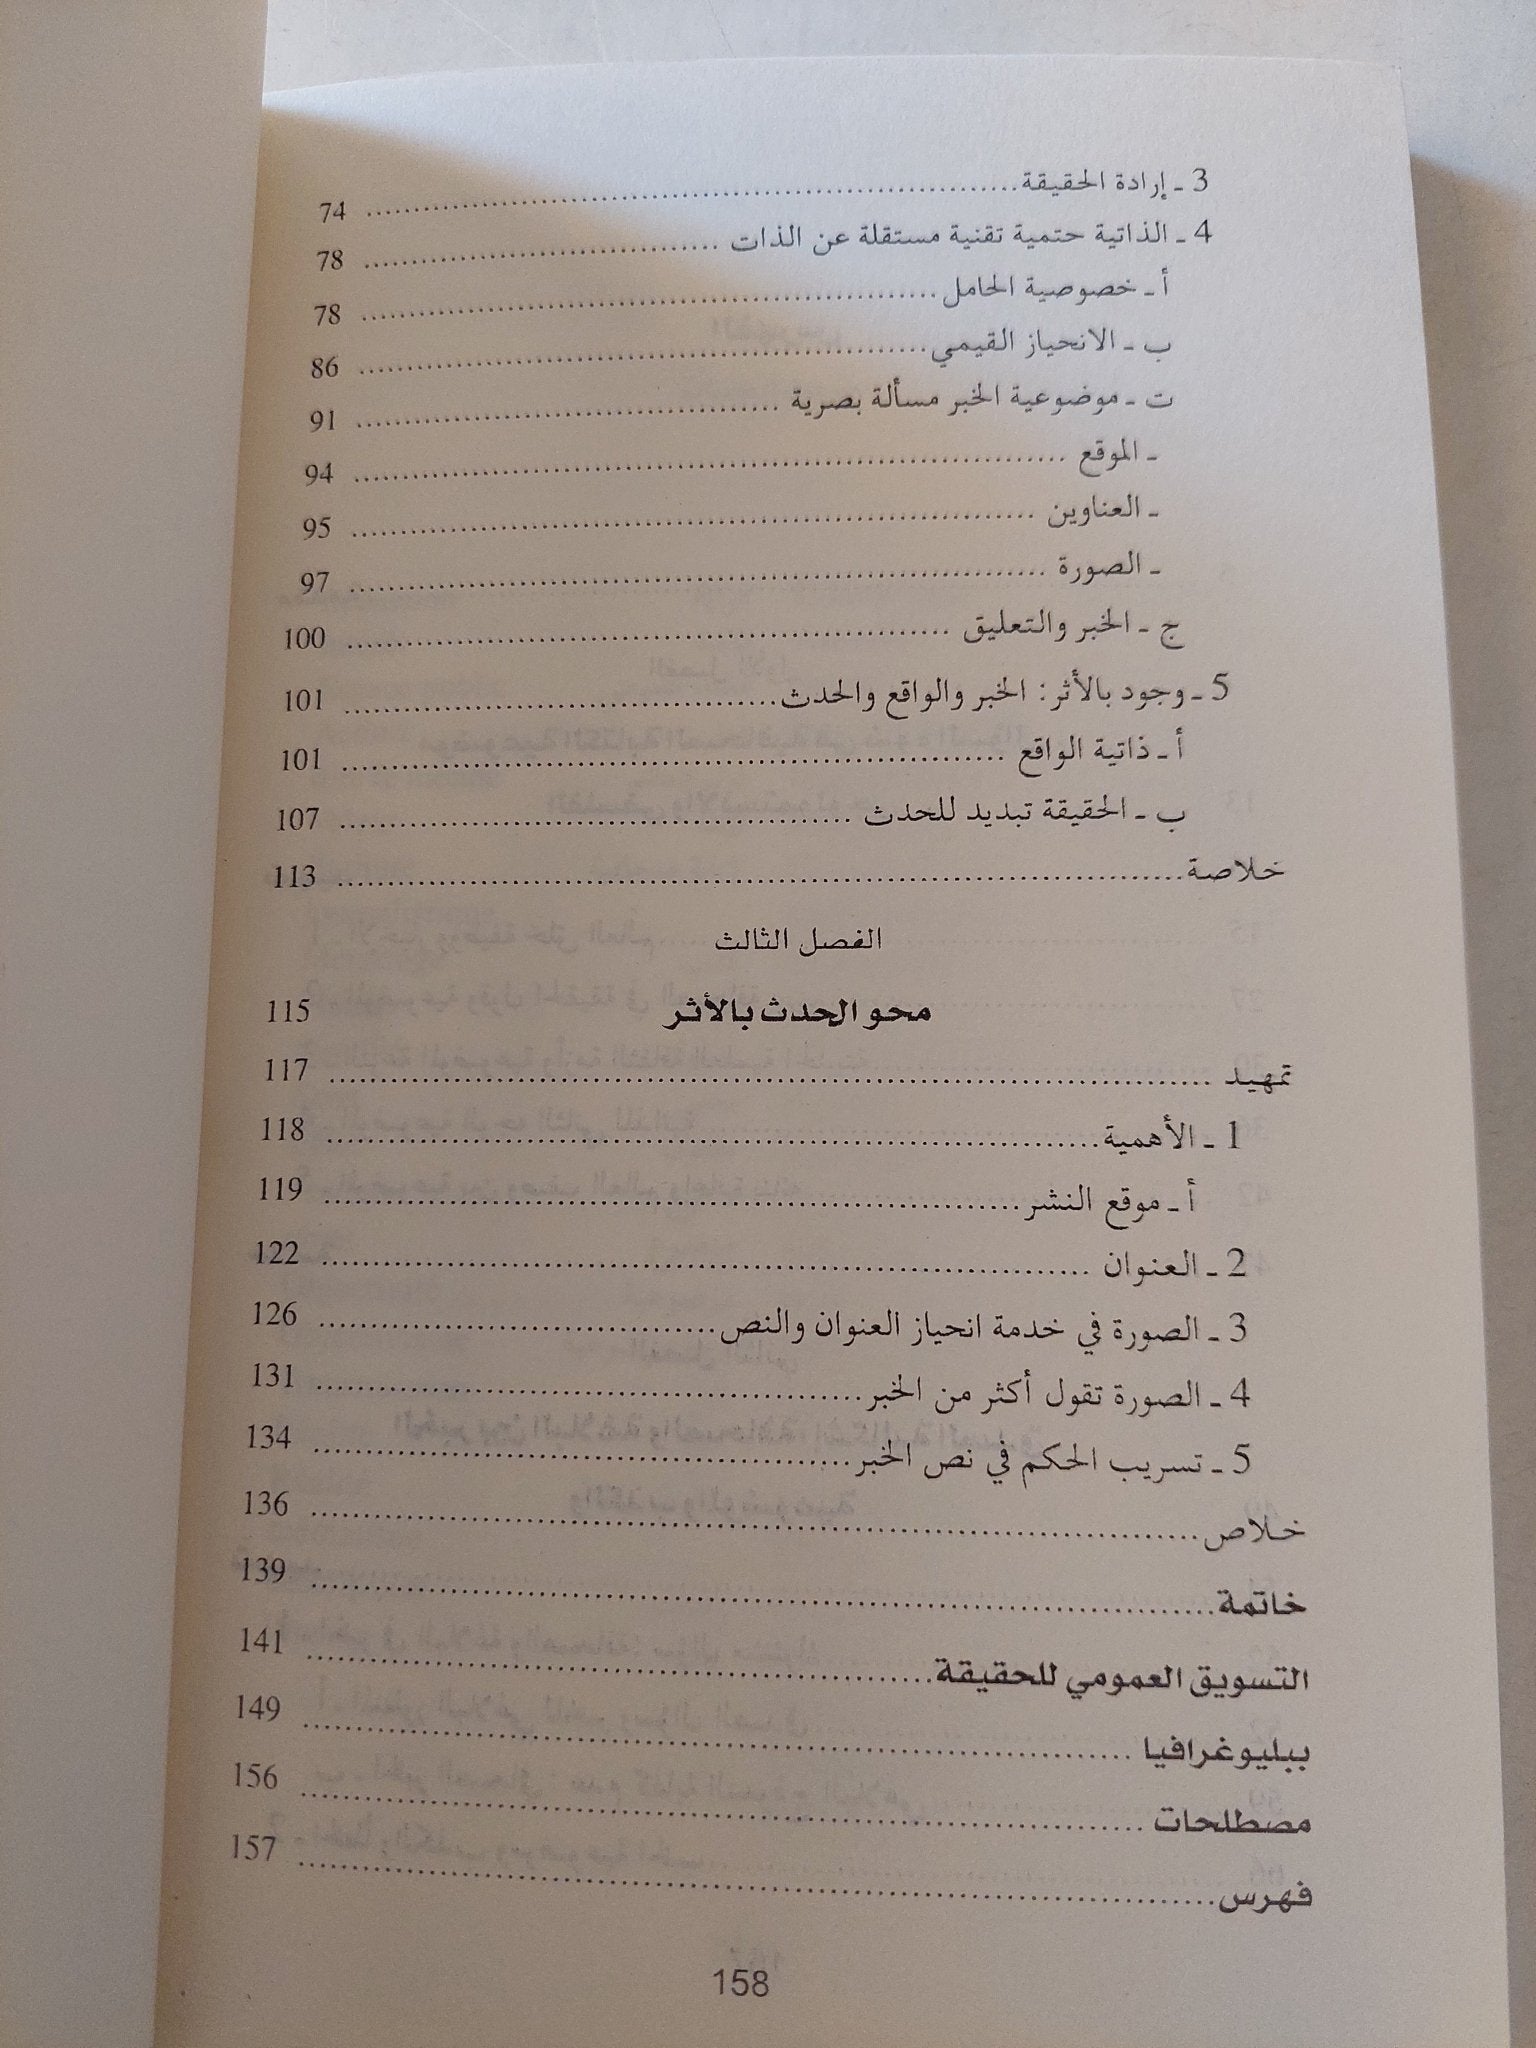 3 ـ إرادة الحقيقة .......... 74
4 ـ الذاتية حتمية تقنية مستقلة عن الذات .......... 78
أ ـ خصوصية الحامل .......... 78
ب ـ الانحياز القيمي .......... 86
ت ـ موضوعية الخبر مسألة بصرية .......... 91
ـ الموقع .......... 94
ـ العناوين .......... 95
ـ الصورة .......... 97
ج ـ الخبر والتعليق .......... 100
5 ـ وجود بالأثر: الخبر والواقع والحدث .......... 101
أ ـ ذاتية الواقع .......... 101
ب ـ الحقيقة تبديد للحدث .......... 107
خلاصة .......... 113
الفصل الثالث
محو الحدث بالأثر 115
تمهيد .......... 117
1 ـ الأهمية .......... 118
أ ـ موقع النشر .......... 119
2 ـ العنوان .......... 122
3 ـ الصورة في خدمة انحياز العنوان والنص .......... 126
4 ـ الصورة تقول أكثر من الخبر .......... 131
5 ـ تسريب الحكم في نص الخبر .......... 134
خلاص .......... 136
خاتمة .......... 139
التسويق العمومي للحقيقة .......... 141
ببليوغرافيا .......... 149
مصطلحات .......... 156
فهرس .......... 157
158